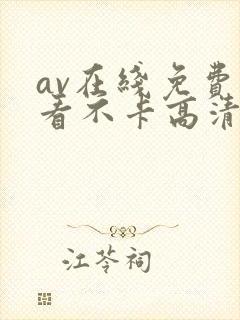 av在綫免費
看不卡高清
江苓祠